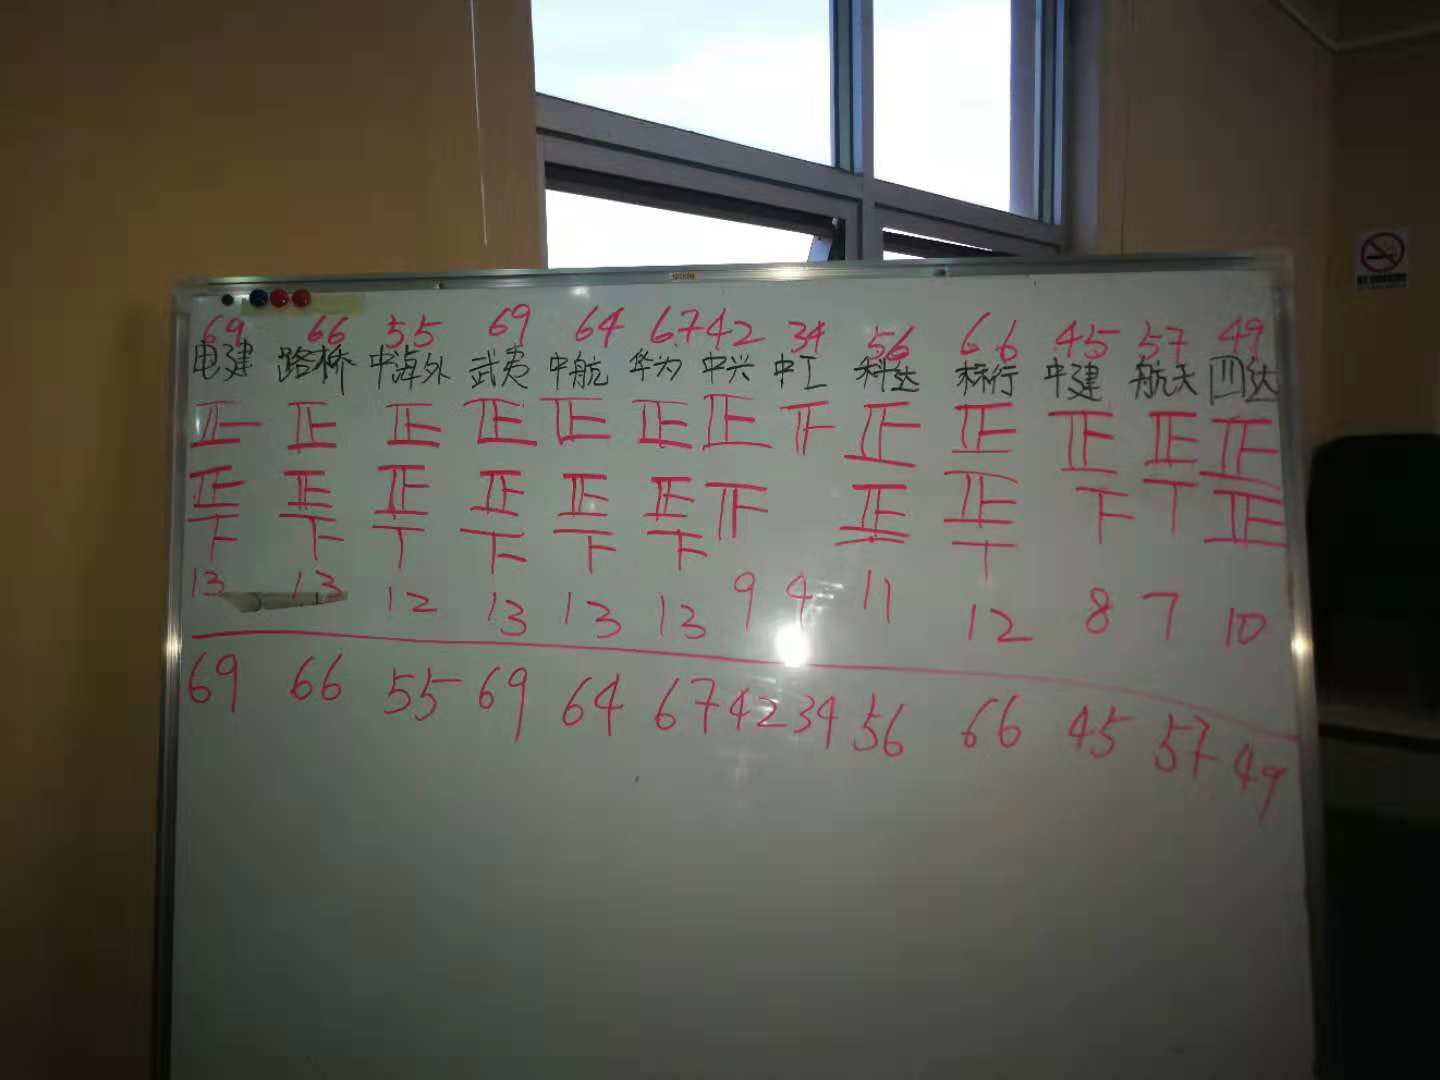 69 66 55 69 64 67 42 34 56 66 45 57 49
电建 路桥 中海外 武夷 中航 华为 中兴 中工 科达 标行 中建 航天 四达
正 正 正 正 正 正 正 正 正 正 正 正
正 正 正 正 正 正 正 正 正
13 13 12 13 13 13 9 4 11 12 8 7 10
69 66 55 69 64 67 42 34 56 66 45 57 49